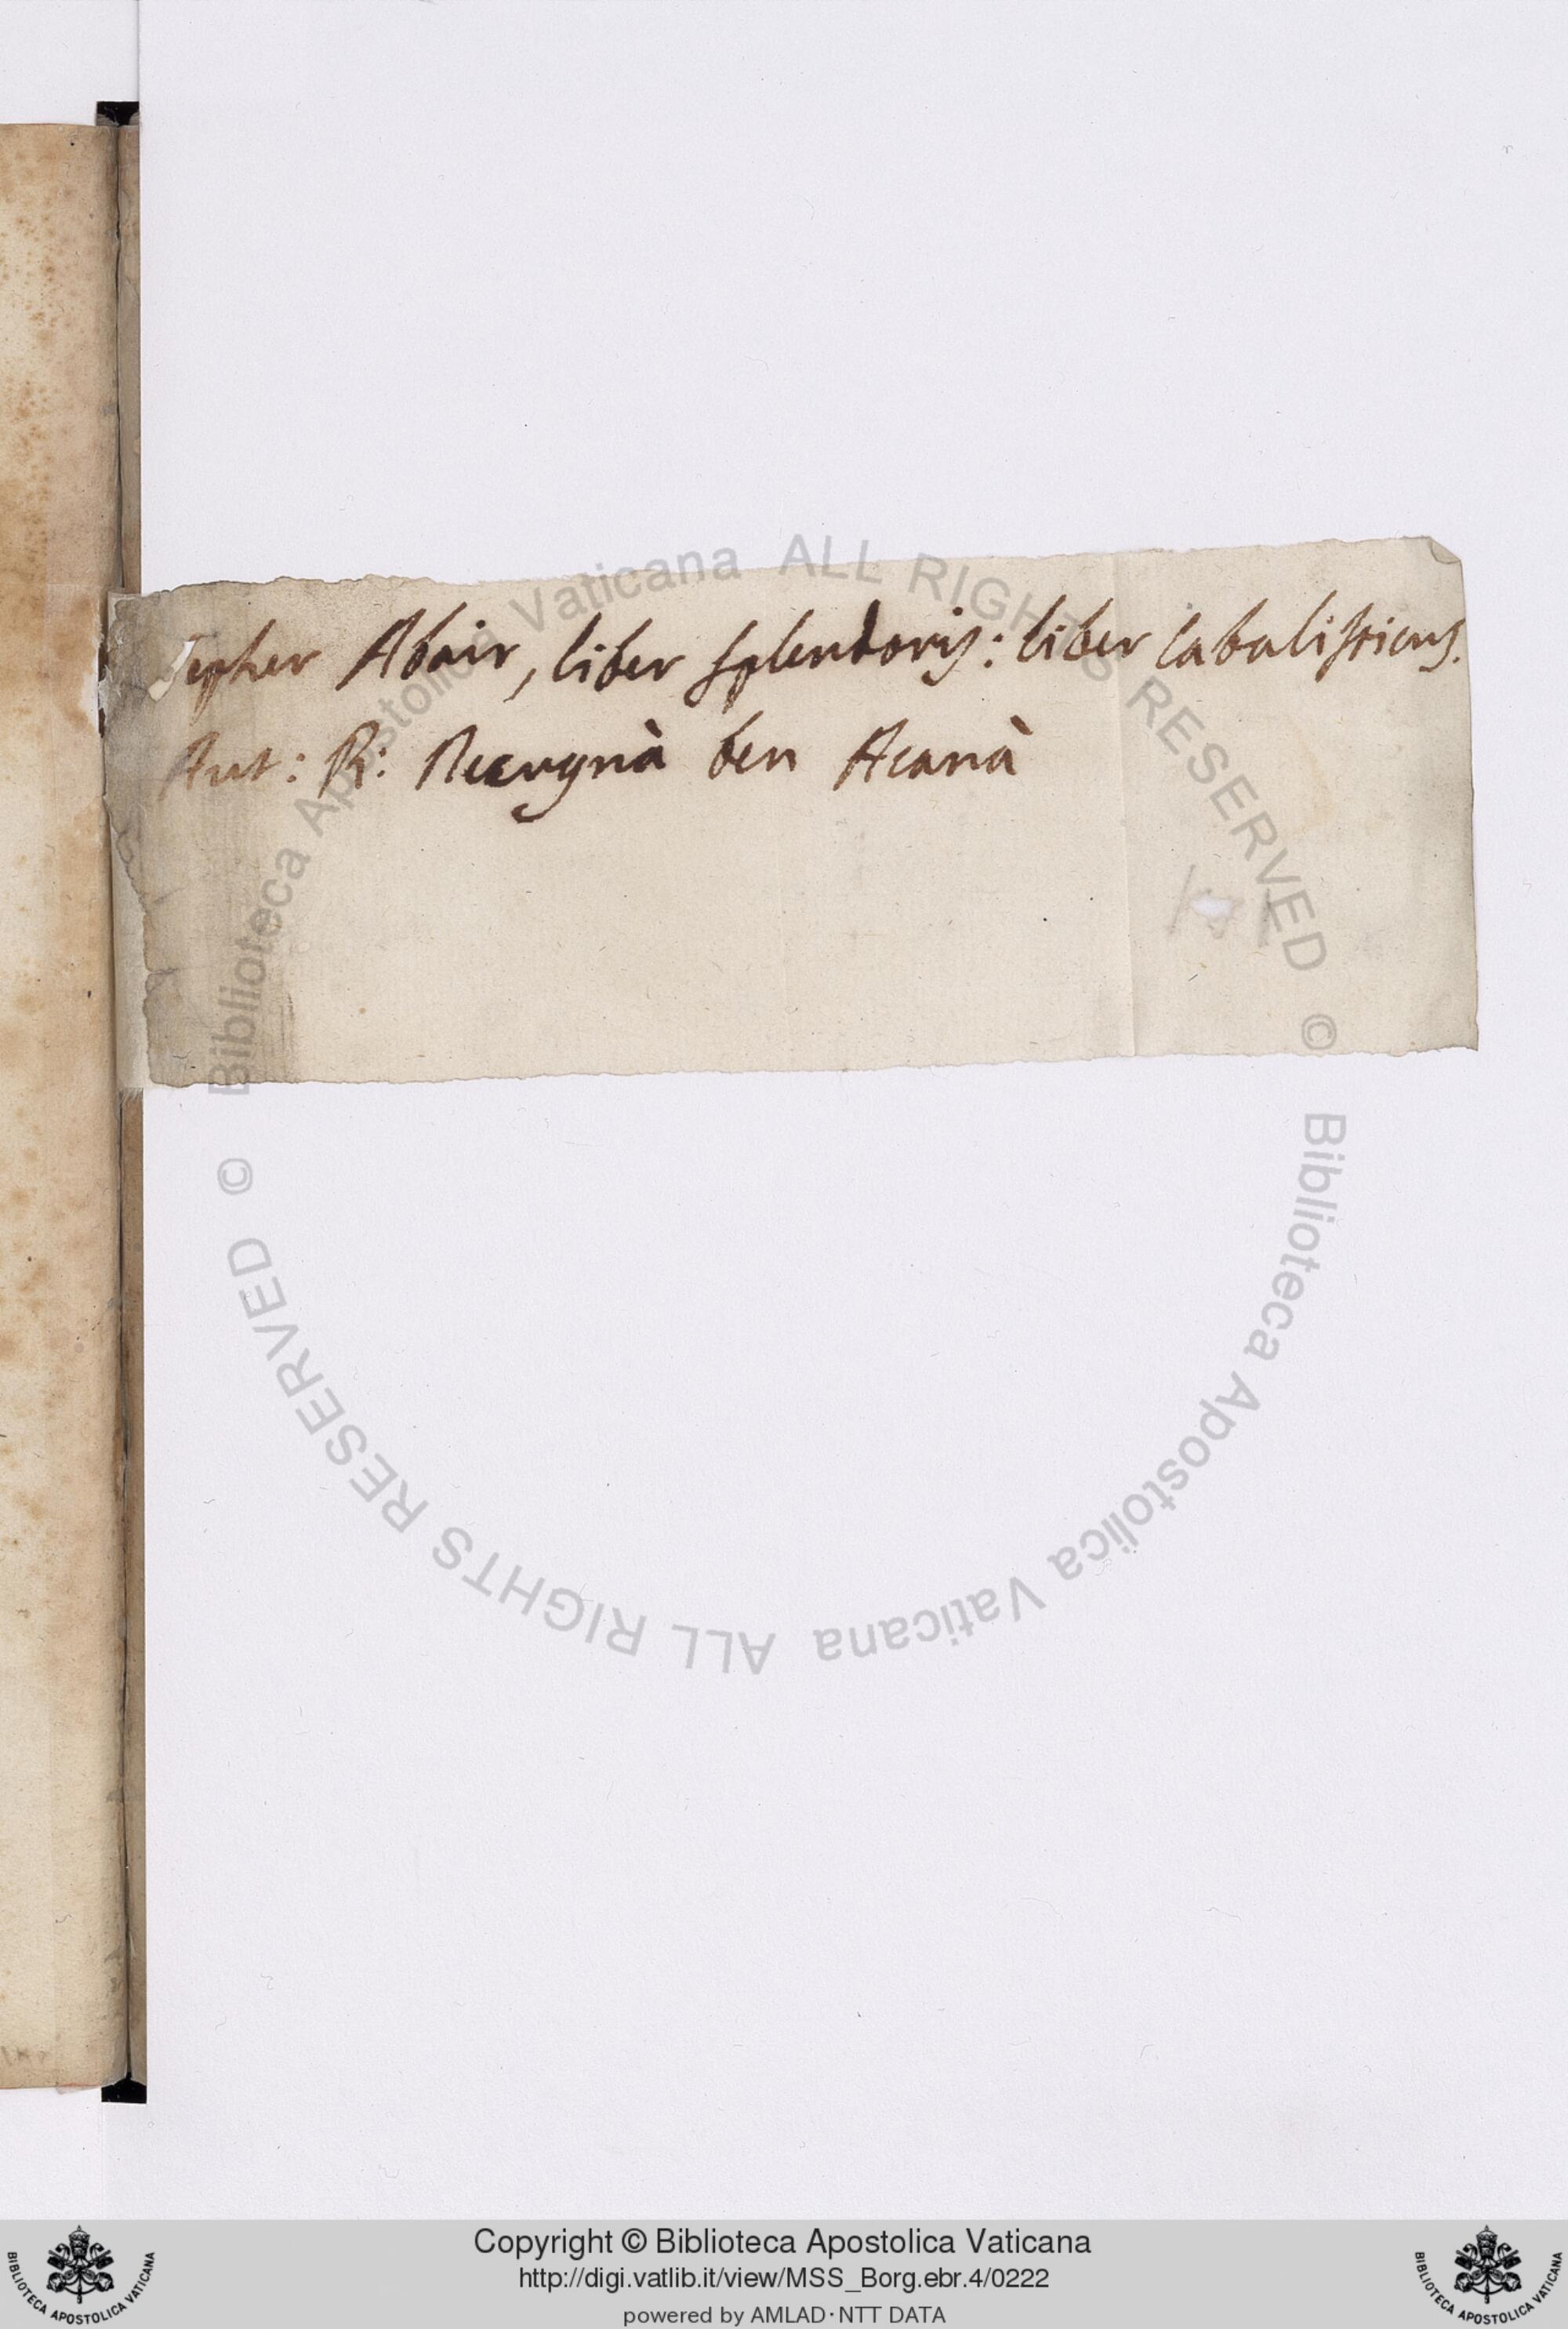 Sepher Abair, liber splendoris: liber Cabalisticus.
Aut: R: Necugnà ben Acanà
© Biblioteca Apostolica Vaticana ALL RIGHTS RESERVED © Biblioteca Apostolica Vaticana ALL RIGHTS RESERVED
Copyright © Biblioteca Apostolica Vaticana
http://digi.vatlib.it/view/MSS_Borg.ebr.4/0222
powered by AMLAD·NTT DATA
BIBLIOTECA APOSTOLICA VATICANA
BIBLIOTECA APOSTOLICA VATICANA